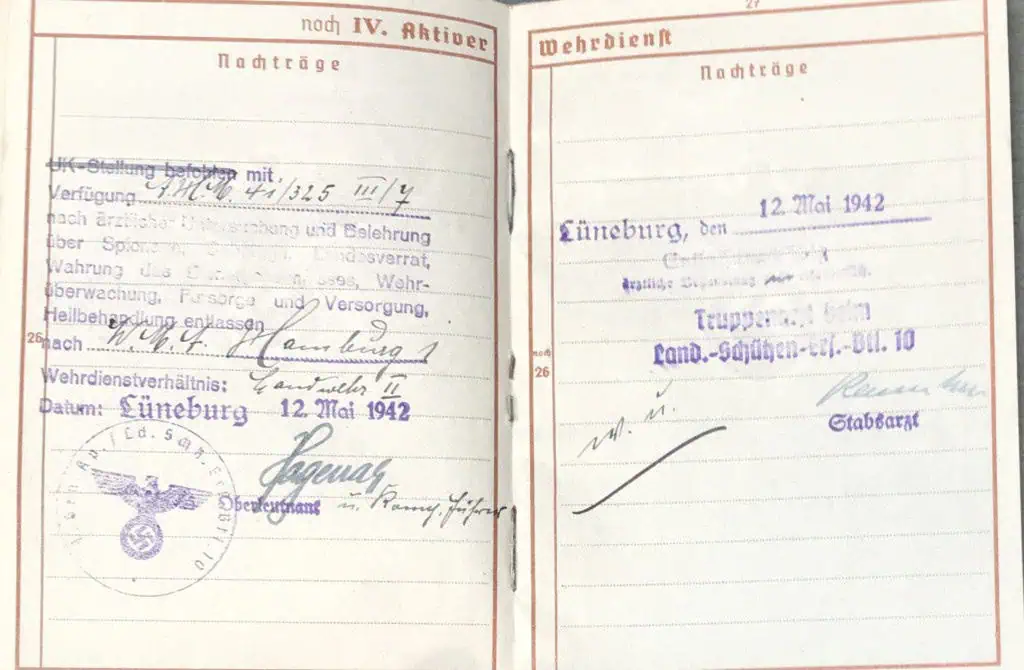 noch IV. Aktiver
Nachträge
UK-Stellung befohlen mit
Verfügung A.H.M. 41/325 III/7
nach ärztlicher Untersuchung und Belehrung
über Landesverrat,
Wahrung des Wehr-
überwachung, Fürsorge und Versorgung,
Heilbehandlung entlassen
26 nach W.M.A. Hamburg 1
Wehrdienstverhältnis: Landwehr II
Datum: Lüneburg 12. Mai 1942
Oberleutnant u. Komp. Führer
27
Wehrdienst
Nachträge
Lüneburg, den 12. Mai 1942
ärztliche
Truppenarzt beim
Land.-Schützen-Ers.-Btl. 10
noch
26
w. u.
Stabsarzt